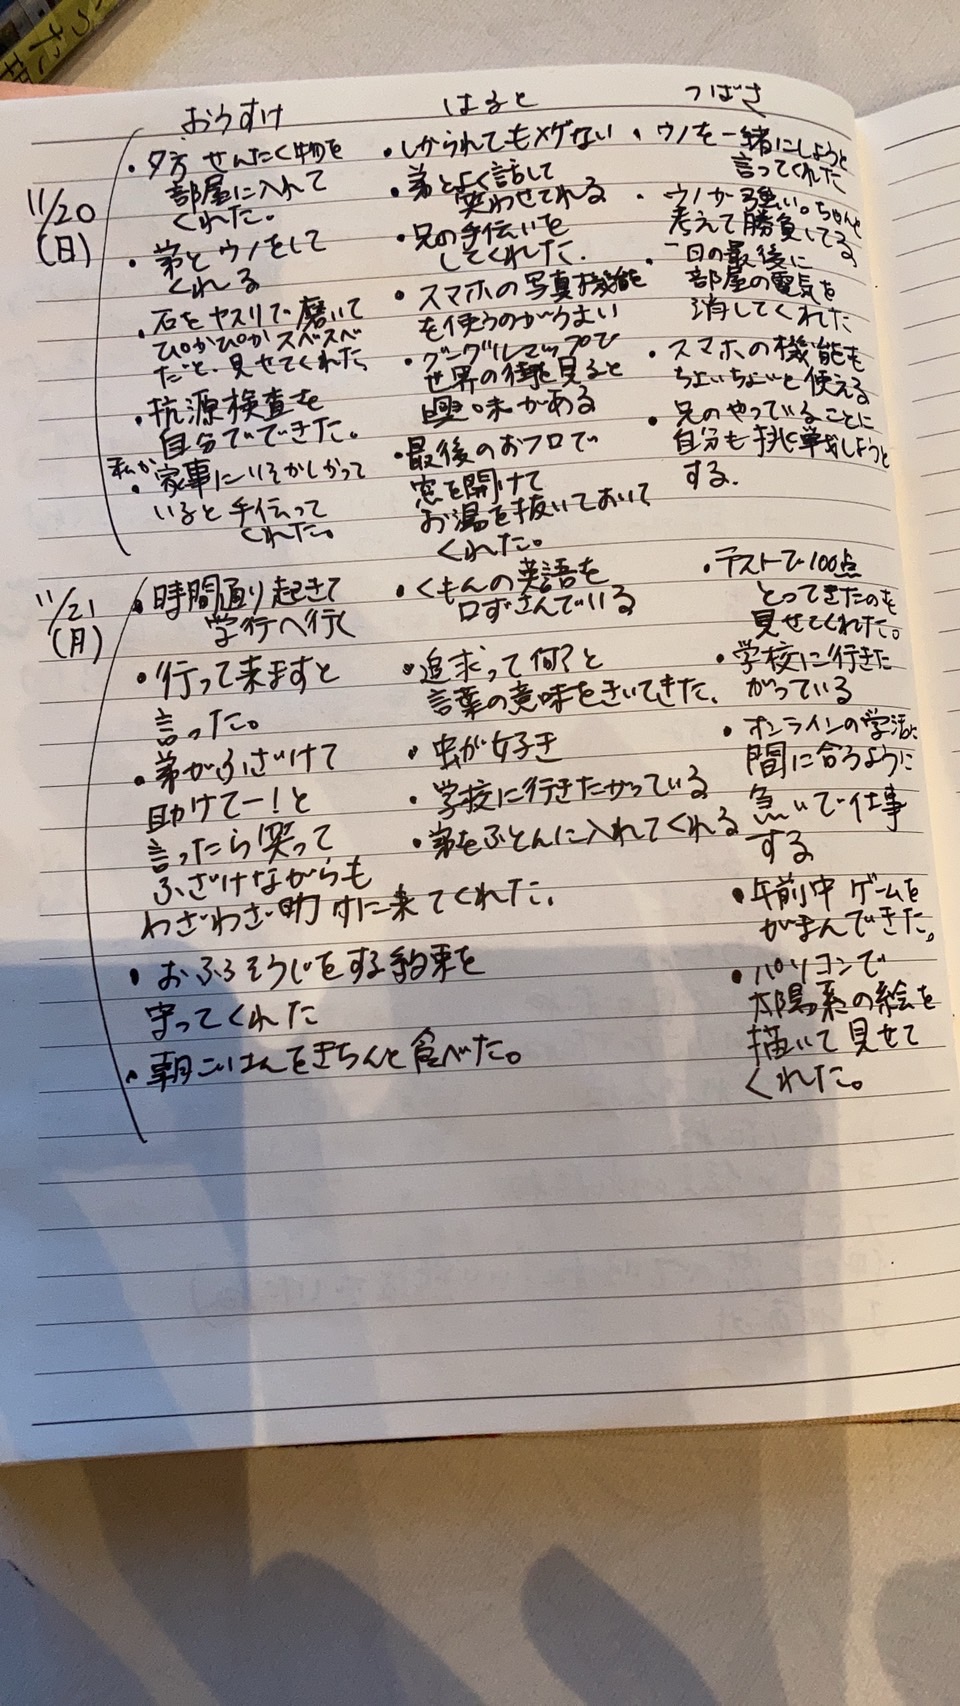 おうすけ
はると
つばさ
11/20
(日)
・夕方 せんたく物を
部屋に入れて
くれた。
・弟とウノをして
くれる
・石をヤスリで磨いて
ぴかぴか スベスベ
だと、見せてくれた
・抗源検査を
自分でできた。
私が
・家事にいそがしかって
いると手伝って
くれた。
・しかられてもメゲない
・弟とよく話して
笑わせてれる
・兄の手伝いを
してくれた.
・スマホの写真機能
を使うのがうまい
・グーグルマップで
世界の街を見ると
興味がある
・最後のおフロで
窓を開けて
お湯を抜いておいて
くれた。
・ウノを一緒にしようと
言ってくれた
・ウノが強い。ちゃんと
考えて勝負してる
・一日の最後に
部屋の電気を
消してくれた
・スマホの機能も
ちょいちょいと使える
・兄のやっていることに
自分も挑戦しようと
する.
11/21
(月)
・時間通り起きて
学行へ行く
・行って来ますと
言った。
・弟がふざけて
助けてー!と
言ったら笑って
ふざけながらも
わざわざ助けに来てくれた.
・おふろそうじをする約束を
守ってくれた
・朝ごはんをきちんと食べた。
・くもんの英語を
口ずさんでいる
・追求って何?と
言葉の意味をきいてきた.
・虫が好き
・学校に行きたがっている
・弟をふとんに入れてくれる
・テストで100点
とってきたのを
見せてくれた。
・学校に行きた
がっている
・オンラインの学活に
間に合うように
急いで仕事
する
・午前中 ゲームを
がまんできた。
・パソコンで
太陽系の絵を
描いて見せて
くれた。